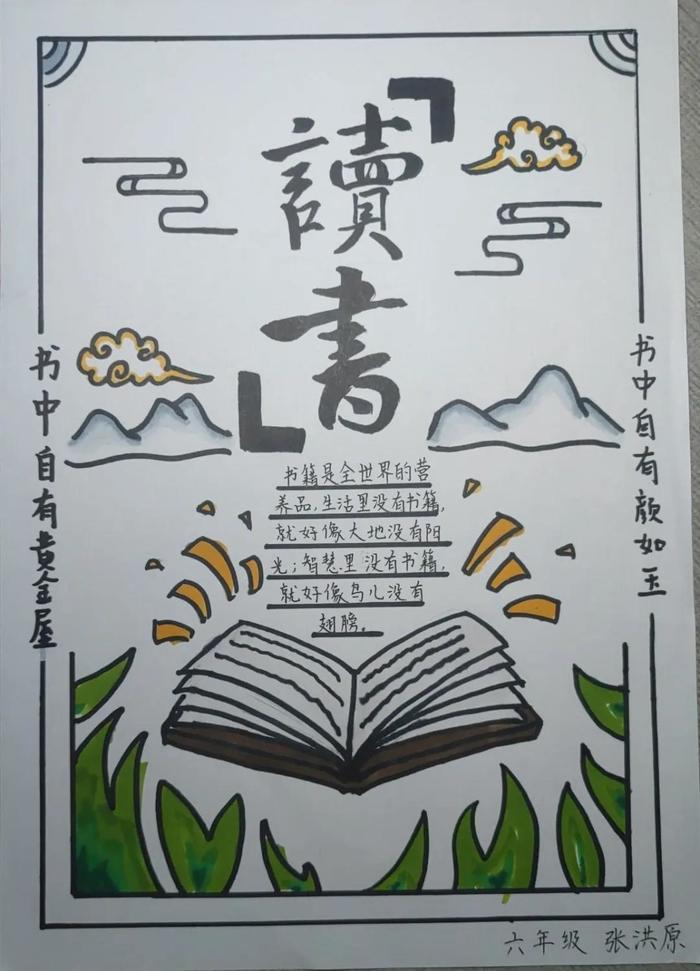 讀
書
书中自有黄金屋
书中自有颜如玉
书籍是全世界的营
养品,生活里没有书籍,
就好像大地没有阳
光;智慧里没有书籍,
就好像鸟儿没有
翅膀。
六年级 张洪原